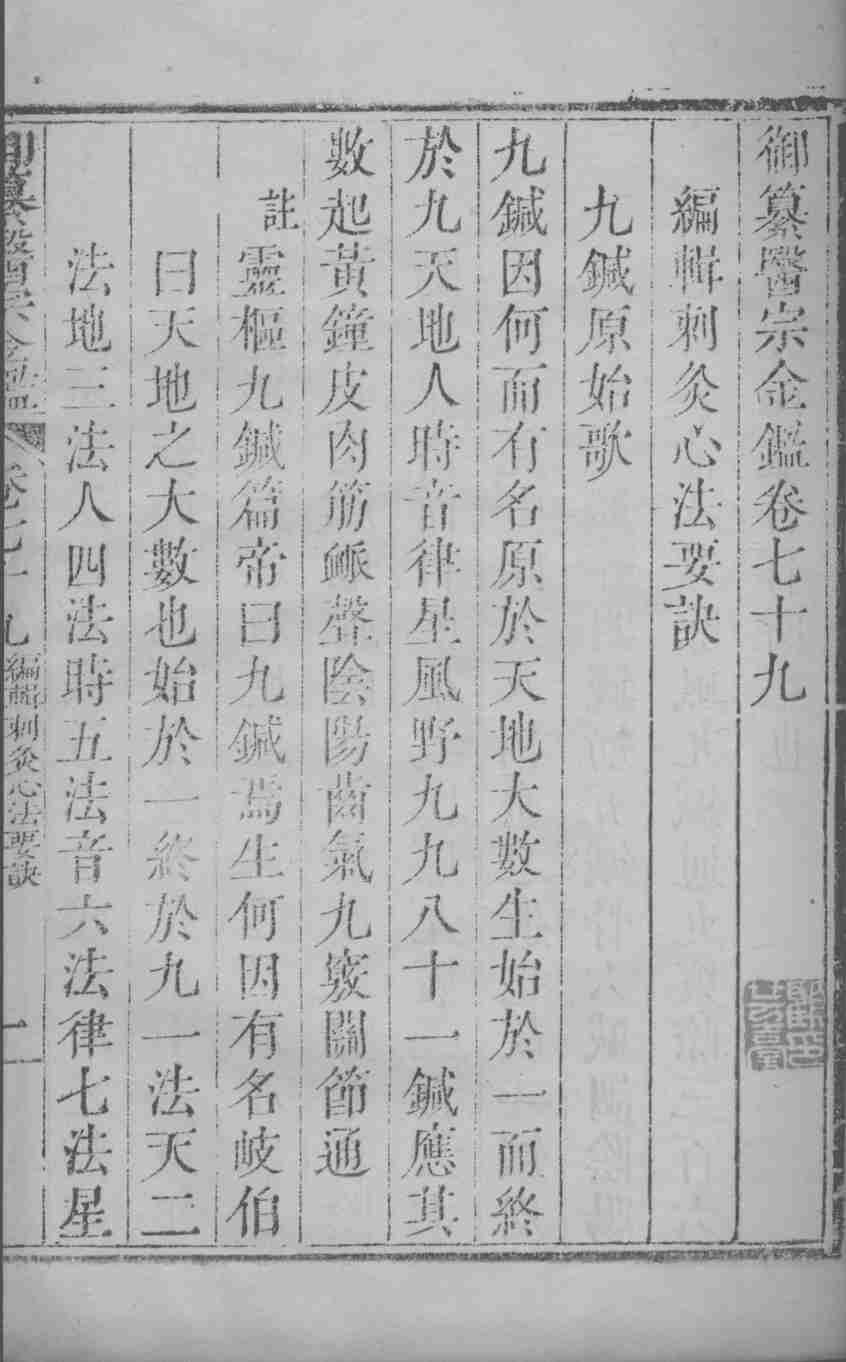 御纂醫宗金鑑卷七十九
編輯刺灸心法要訣
九鍼原始歌
九鍼因何而有名原於天地大數生始於一而終
於九天地人時音律星風野九九八十一鍼應其
數起黃鐘皮肉筋脈聲陰陽齒氣九竅關節通
註靈樞九鍼篇帝曰九鍼焉生何因有名岐伯
曰天地之大數也始於一終於九一法天二
法地三法人四法時五法音六法律七法星
御纂醫宗金鑑 卷七十九 編輯刺灸心法要訣 一